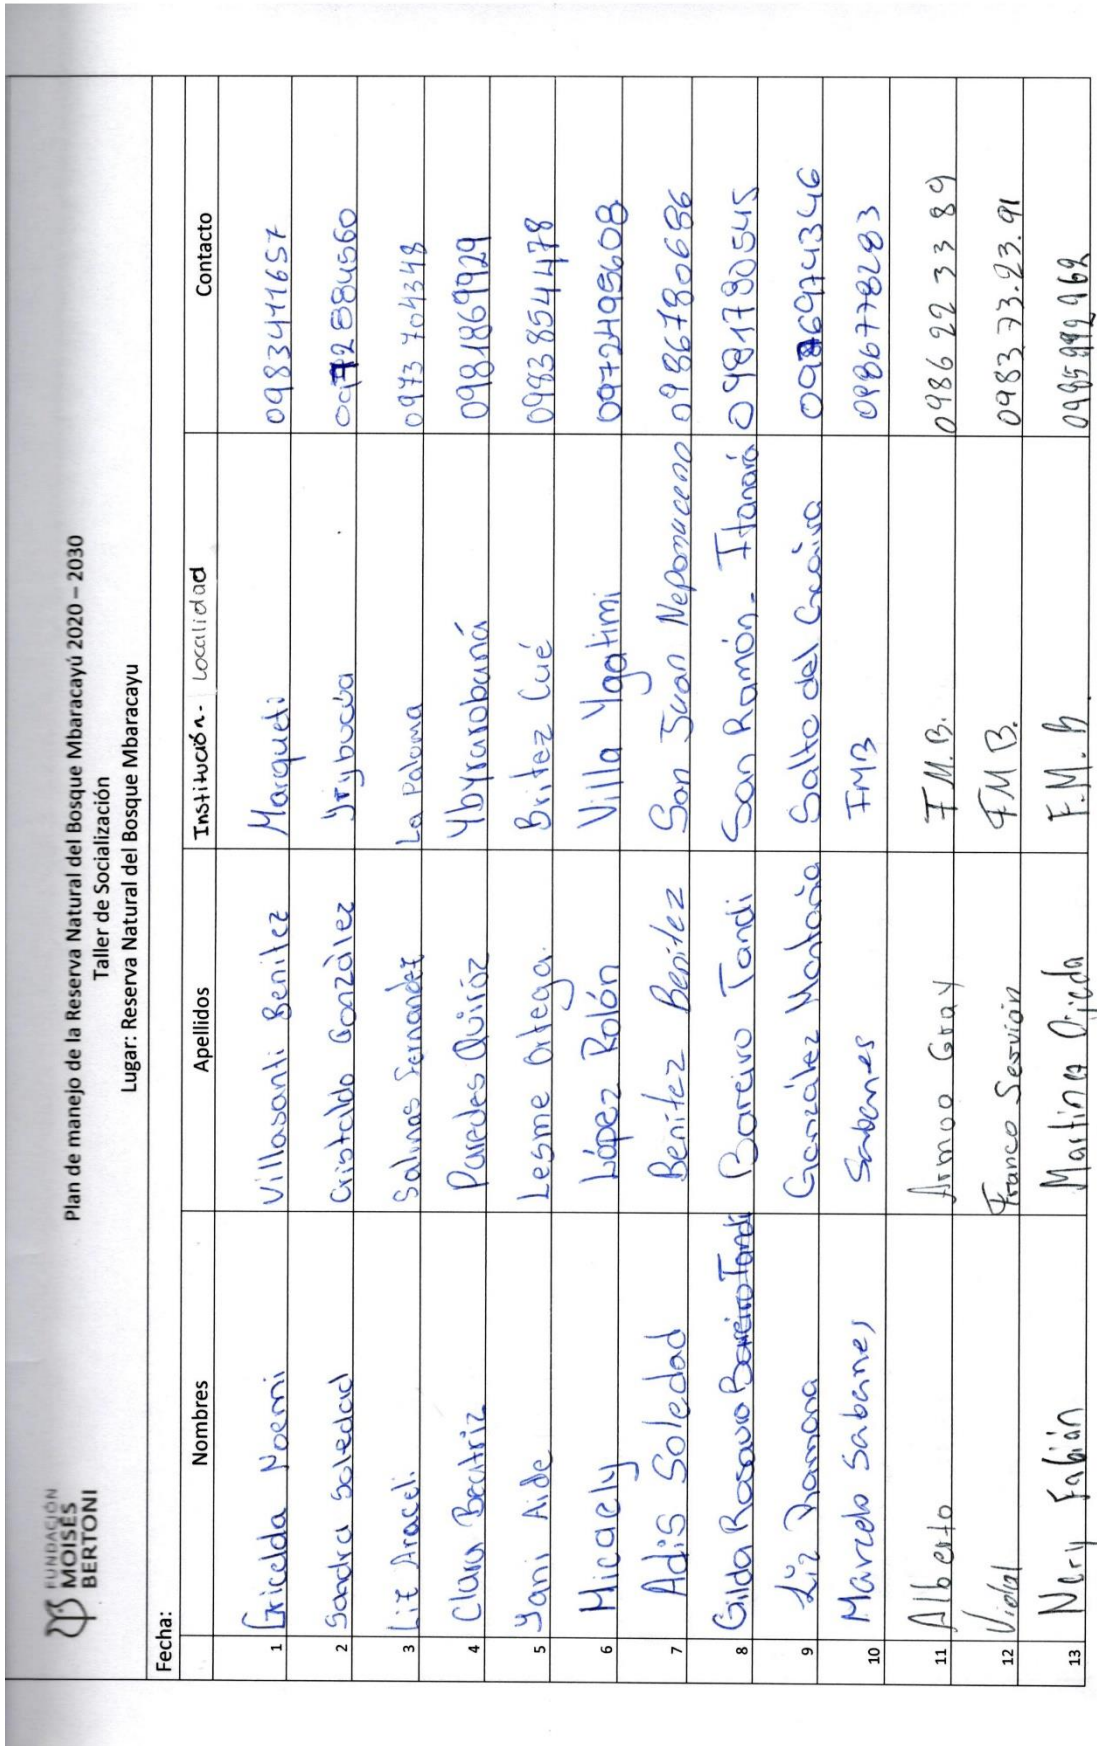 FUNDACIÓN
MOISÉS
BERTONI
Plan de manejo de la Reserva Natural del Bosque Mbaracayú 2020 – 2030
Taller de Socialización
Lugar: Reserva Natural del Bosque Mbaracayu
Fecha:
Nombres Apellidos Institución - Localidad Contacto
1 Gricelda Noemi Villasanti Benitez Marqueti 0983411657
2 Sandra Soledad Cristaldo González Yrybucua 0972884560
3 Liz Araceli Salinas Fernandez La Paloma 0973 704348
4 Clara Beatriz Paredes Quiróz Ybyrarobaná 0981869929
5 Yani Aide Lesme Ortega Britez Cué 0983854478
6 Micaely López Rolón Villa Ygatimi 0972495608
7 Adis Soledad Benítez Benítez San Juan Nepomuceno 0986780686
8 Gilda Rosaura Bareiro Tandi Bareiro Tandi San Ramón - Itanará 0981790545
9 Liz Ramona González Montaña Salto del Guáira 0976974346
10 Marcelo Sabanes Sabanes FMB 0986778283
11 Alberto Armoa Gray F.M.B. 0986 22 33 89
12 Vidal Franco Servián FMB. 0983 73.23.91
13 Nery Fabián Martinez Ojeda F.M.B 0985992962